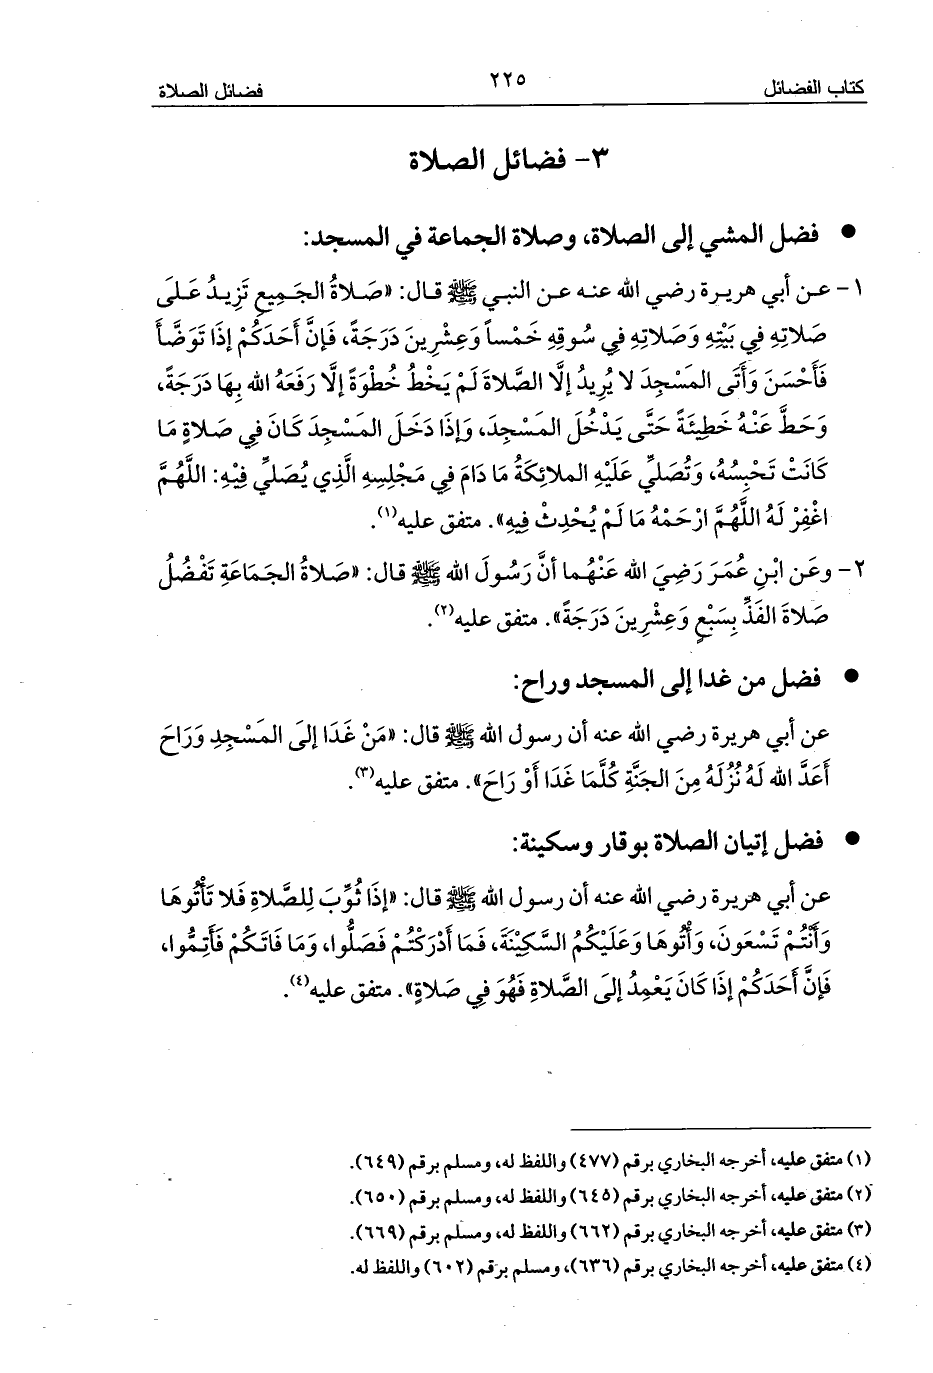 كتاب الفضائل ٢٢٥ فضائل الصلاة
٣- فضائل الصلاة
● فضل المشي إلى الصلاة، وصلاة الجماعة في المسجد:
١- عن أبي هريرة رضي الله عنه عن النبي ﷺ قال: «صَلاةُ الجَمِيعِ تَزِيدُ عَلَى
صَلاتِهِ فِي بَيْتِهِ وَصَلاتِهِ فِي سُوقِهِ خَمْساً وَعِشْرِينَ دَرَجَةً، فَإنَّ أَحَدَكُمْ إذَا تَوَضَّأَ
فَأَحْسَنَ وَأَتَى المَسْجِدَ لا يُرِيدُ إلَّا الصَّلاةَ لَمْ يَخْطُ خُطْوَةً إلَّا رَفَعَهُ الله بِهَا دَرَجَةً،
وَحَطَّ عَنْهُ خَطِيئَةً حَتَّى يَدْخُلَ المَسْجِدَ، وَإذَا دَخَلَ المَسْجِدَ كَانَ فِي صَلاةٍ مَا
كَانَتْ تَحْبِسُهُ، وَتُصَلِّي عَلَيْهِ الملائِكَةُ مَا دَامَ فِي مَجْلِسِهِ الَّذِي يُصَلِّي فِيْهِ: اللَّهُمَّ
اغْفِرْ لَهُ اللَّهُمَّ ارْحَمْهُ مَا لَمْ يُحْدِثْ فِيهِ». متفق عليه(١).
٢- وعَن ابْنِ عُمَرَ رَضِيَ الله عَنْهُما أنَّ رَسُولَ الله ﷺ قال: «صَلاةُ الجَمَاعَةِ تَفْضُلُ
صَلاةَ الفَذِّ بِسَبْعٍ وَعِشْرِينَ دَرَجَةً». متفق عليه(٢).
● فضل من غدا إلى المسجد وراح:
عن أبي هريرة رضي الله عنه أن رسول الله ﷺ قال: «مَنْ غَدَا إلَى المَسْجِدِ وَرَاحَ
أَعَدَّ الله لَهُ نُزُلَهُ مِنَ الجَنَّةِ كُلَّمَا غَدَا أَوْ رَاحَ». متفق عليه(٣).
● فضل إتيان الصلاة بوقار وسكينة:
عن أبي هريرة رضي الله عنه أن رسول الله ﷺ قال: «إذَا ثُوِّبَ لِلصَّلاةِ فَلا تَأْتُوهَا
وَأَنْتُمْ تَسْعَونَ، وَأْتُوهَا وَعَلَيْكُمُ السَّكِيْنَةَ، فَمَا أَدْرَكْتُمْ فَصَلُّوا، وَمَا فَاتَكُمْ فَأَتِمُّوا،
فَإنَّ أَحَدَكُمْ إذَا كَانَ يَعْمِدُ إلَى الصَّلاةِ فَهُوَ فِي صَلاةٍ». متفق عليه(٤).
(١) متفق عليه، أخرجه البخاري برقم (٤٧٧) واللفظ له، ومسلم برقم (٦٤٩).
(٢) متفق عليه، أخرجه البخاري برقم (٦٤٥) واللفظ له، ومسلم برقم (٦٥٠).
(٣) متفق عليه، أخرجه البخاري برقم (٦٦٢) واللفظ له، ومسلم برقم (٦٦٩).
(٤) متفق عليه، أخرجه البخاري برقم (٦٣٦)، ومسلم برقم (٦٠٢) واللفظ له.